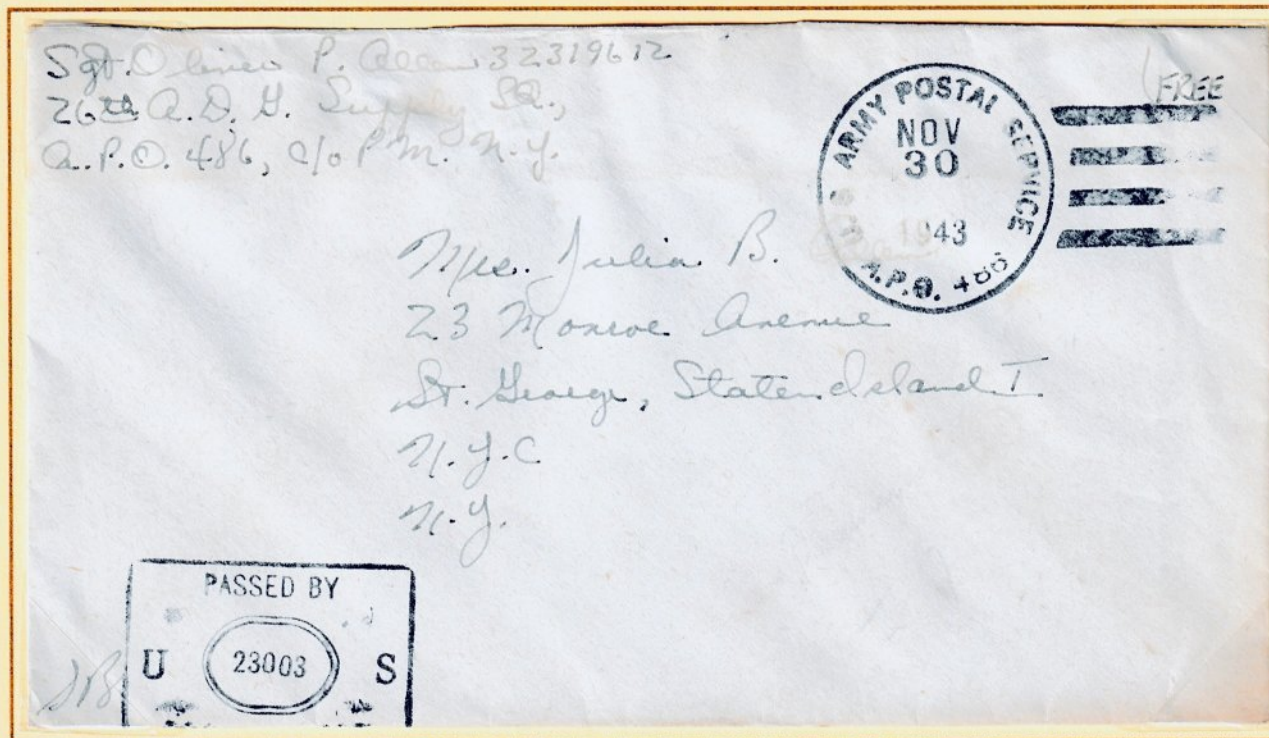 Sgt. Oliver P. Allen 32319612
26th A.D.G. Supply SQ.,
A.P.O. 486, c/o P.M. N.Y.
FREE
U.S. ARMY POSTAL SERVICE
NOV
30
1943
A.P.O. 486
Mrs. Julia B. Allen
23 Monroe Avenue
St. George, Staten Island
N.Y.C
N.Y.
PASSED BY
U 23003 S